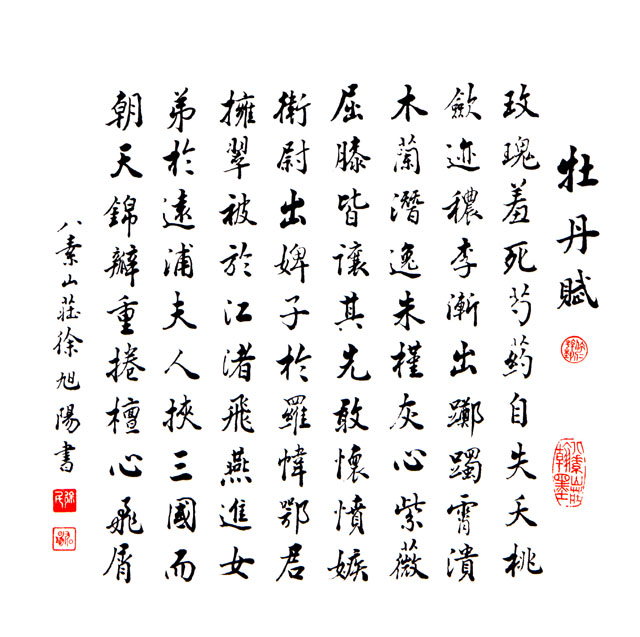 牡丹賦
玫瑰羞死芍葯自失夭桃
歛迹穠李漸出躑躅霄潰
木蘭潛逸朱槿灰心紫薇
屈膝皆讓其先敢懷憤嫉
衛尉出婢子於羅幃鄂君
擁翠被於江渚飛燕進女
弟於遠浦夫人挾三國而
朝天錦瓣重捲檀心飛屑
八素山莊徐旭陽書